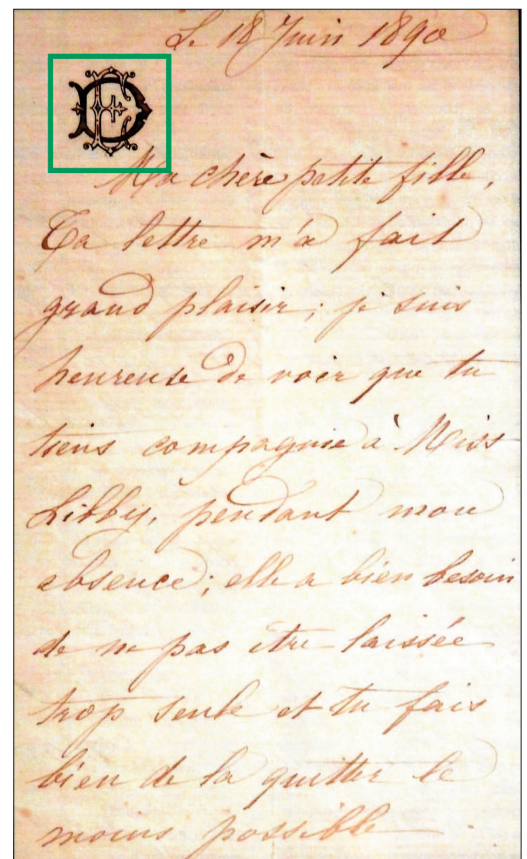 Le 18 Juin 1890
Ma chère petite fille,
Ta lettre m'a fait
grand plaisir; je suis
heureuse de voir que tu
tiens compagnie à Miss
Libby, pendant mon
absence; elle a bien besoin
de ne pas être laissée
trop seule et tu fais
bien de la quitter le
moins possible.